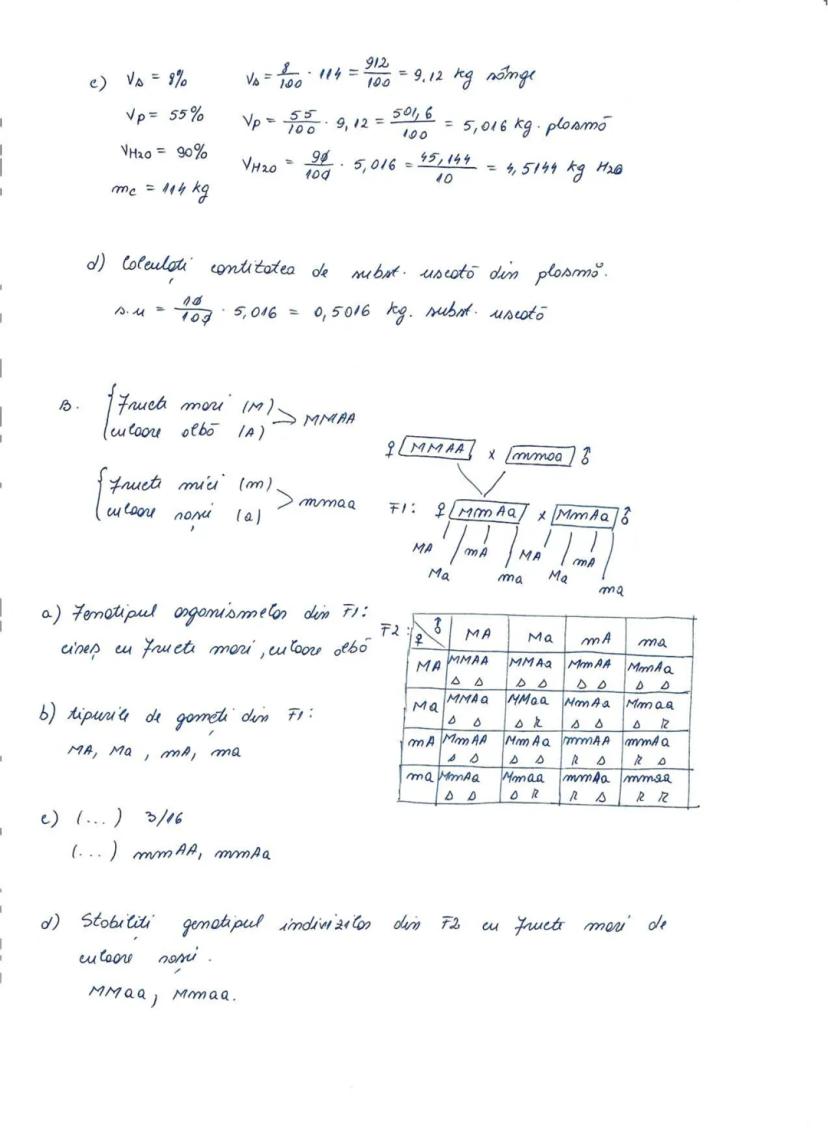 c) VS = 8% VS = 8/100 · 114 = 912/100 = 9,12 kg sânge
VP = 55% VP = 55/100 · 9,12 = 501,6/100 = 5,016 kg. plasmă
VH2O = 90% VH2O = 90/100 · 5,016 = 45,144/10 = 4,5144 kg H2O
mc = 114 kg
d) Calculați cantitatea de subst. uscată din plasmă.
s.u = 10/100 · 5,016 = 0,5016 kg. subst. uscată
B. Fructe mari (M)
culoare albă (A)
MMAA
♀ MMAA x mmaa ♂
Fructe mici (m)
culoare roșie (a)
mmaa
F1: ♀ MmAa x MmAa ♂
MA Ma mA ma MA Ma mA ma
a) Fenotipul organismelor din F1:
cireș cu fructe mari, culoare albă
b) tipurile de gameți din F1:
MA, Ma, mA, ma
F2: ♀ ♂ MA Ma mA ma
MA MMAA MMAa MmAA MmAa
D D D D D D D D
Ma MMAa MMaa MmAa Mmaa
D D D R D D D R
mA MmAA MmAa mmAA mmAa
D D D D R D R D
ma MmAa Mmaa mmAa mmaa
D D D R R D R R
c) (...) 3/16
(...) mmAA, mmAa
d) Stabiliți genotipul indivizilor din F2 cu fructe mari de
culoare roșie.
MMaa, Mmaa.